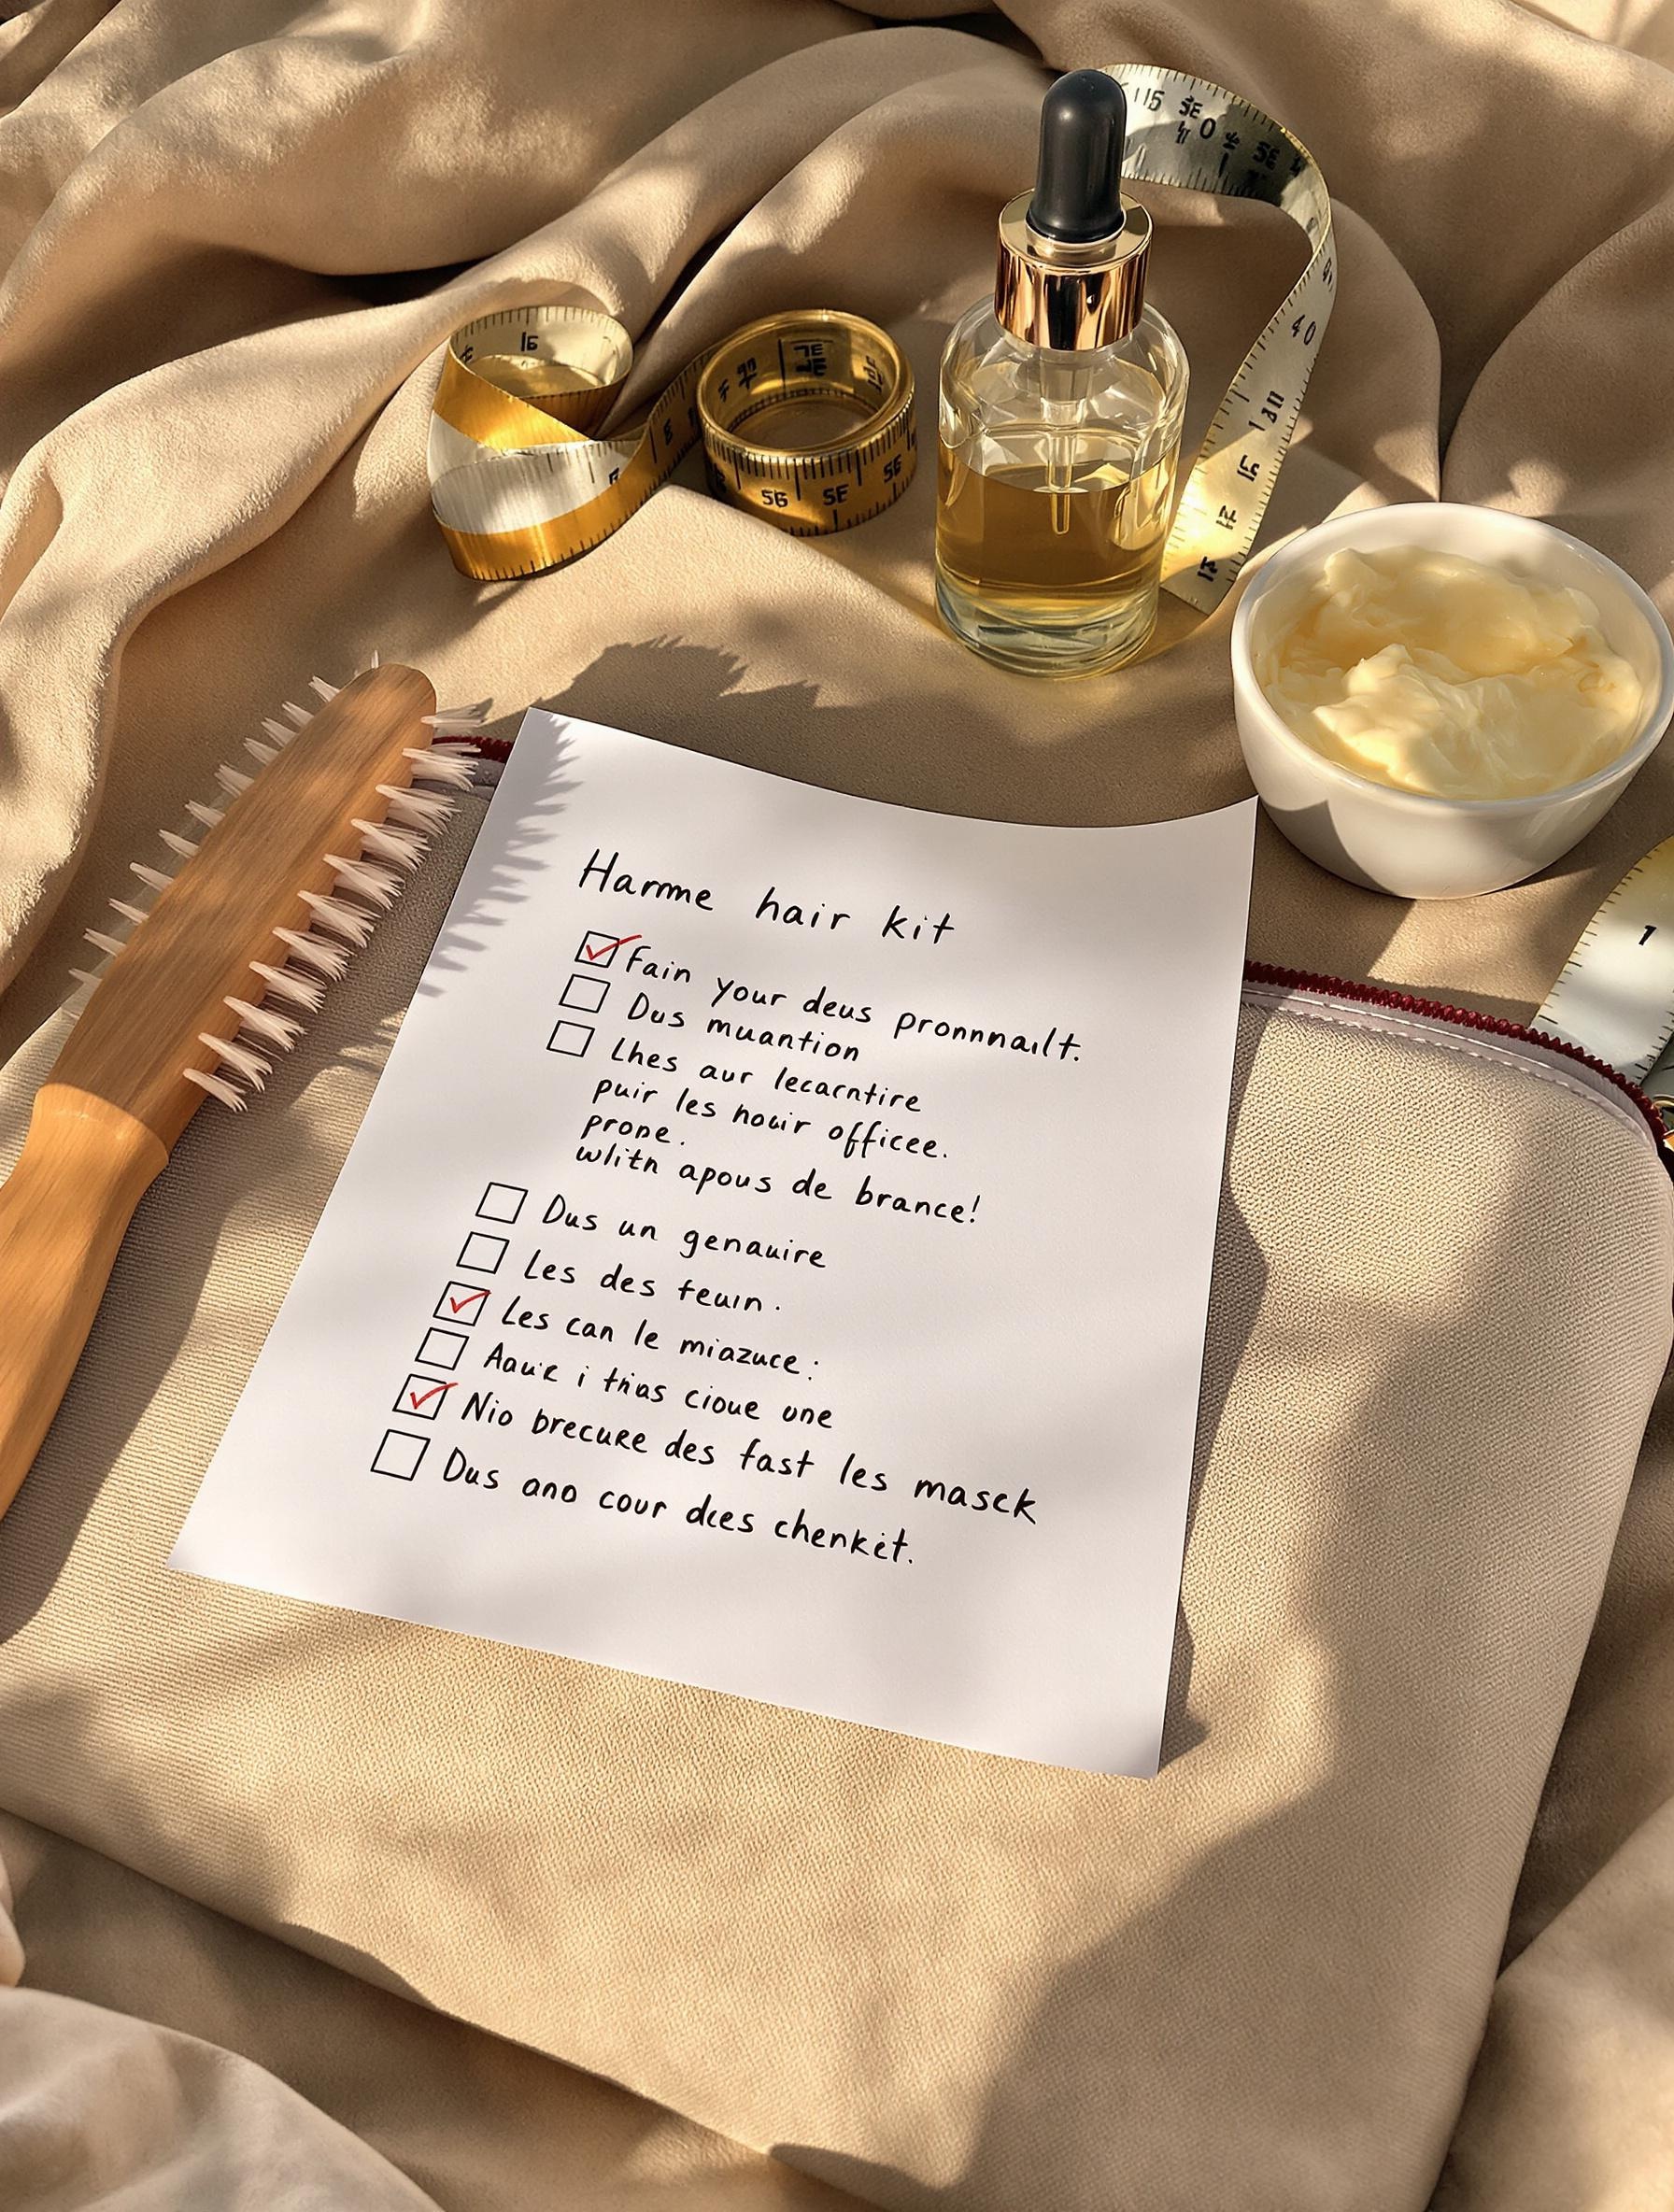 Harmme hair kit
Fain your deus pronnnailt.
Dus muantion
Lhes aur lecarntire
puir les houir officee.
prone.
wlitn apous de brance!
Dus un genauire
Les des teuin.
Les can le miazuce:
Aauik i trias cioue une
Nio brecure des fast les masck
Dus ano cour dees chenkèt.
40